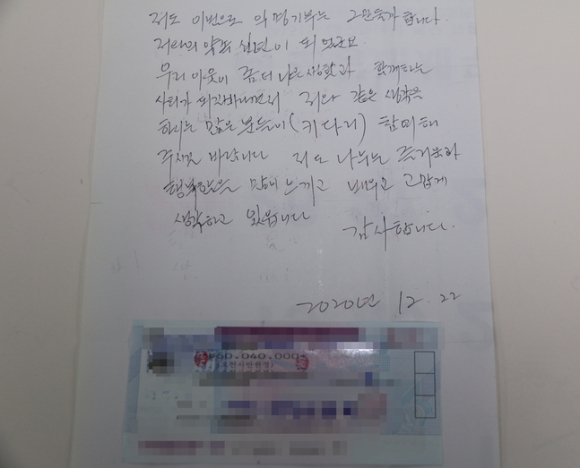 저도 이번으로 익명기부는 그만둘가 합니다
저와의 약속 10년이 되였군요
우리 이웃이 좀더 나은 생활과 함께하는
사회가 되길바라면서 저와 같은 생각을
하시는 많은 분들이 (키다리) 함께해
주시길 바랍니다 저도 나누는 즐거움과
행복함을 많이 느끼고 배우고 고맙게
생각하고 있읍니다
감사합니다.
2020년 12. 22
₩50.040.000